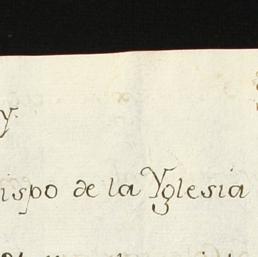 y
ispo de la Yglesia